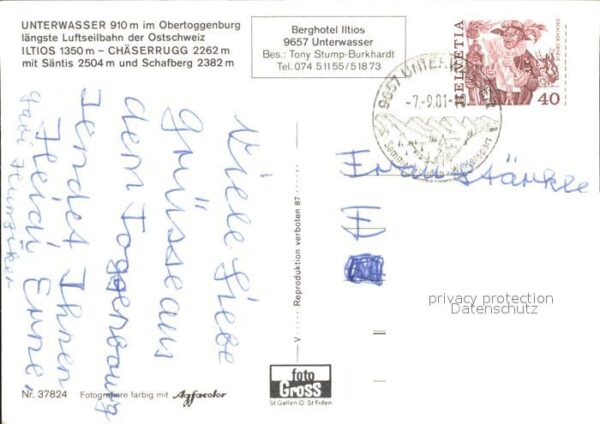 UNTERWASSER 910 m im Obertoggenburg
längste Luftseilbahn der Ostschweiz
ILTIOS 1350 m – CHÄSERRUGG 2262 m
mit Säntis 2504 m und Schafberg 2382 m
Berghotel Iltios
9657 Unterwasser
Bes.: Tony Stump-Burkhardt
Tel. 074 51155/51873
HELVETIA
40
9657 UNTER
-7.-9.81-
Viele Liebe
Grüsse aus
dem Toggenbourg
Sendet Ihnen
Heidi
Gabi Hunziker
Frau Stärkle
Reproduktion verboten 87
V
privacy protection
Datenschutz
Nr. 37824
Fotografiere farbig mit Agfacolor
foto
Gross
St Gallen O. St Fiden